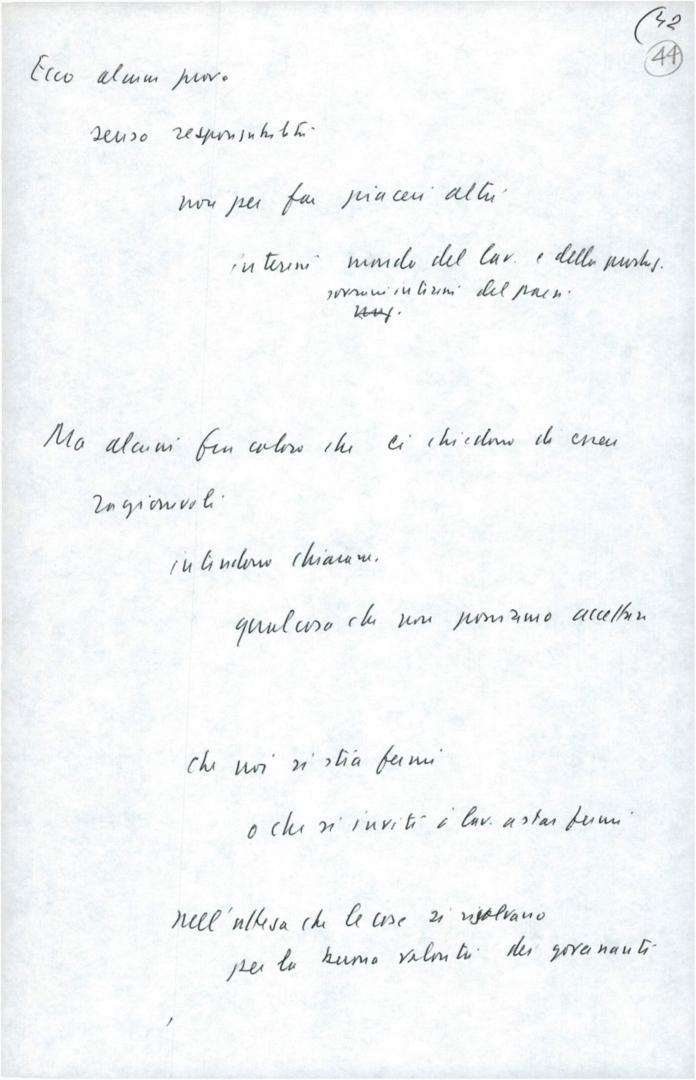 (42
44
Ecco alcune prove
senso responsabilità
non per far piaceri altri
interessi mondo del lav. e della produz.
interessi del paese.
Ma alcuni fra coloro che ci chiedono di essere
ragionevoli
intendono chiaram.
qualcosa che non possiamo accettare
che noi si stia fermi
o che si inviti i lav. a star fermi
nell'attesa che le cose si risolvano
per la buona volontà dei governanti